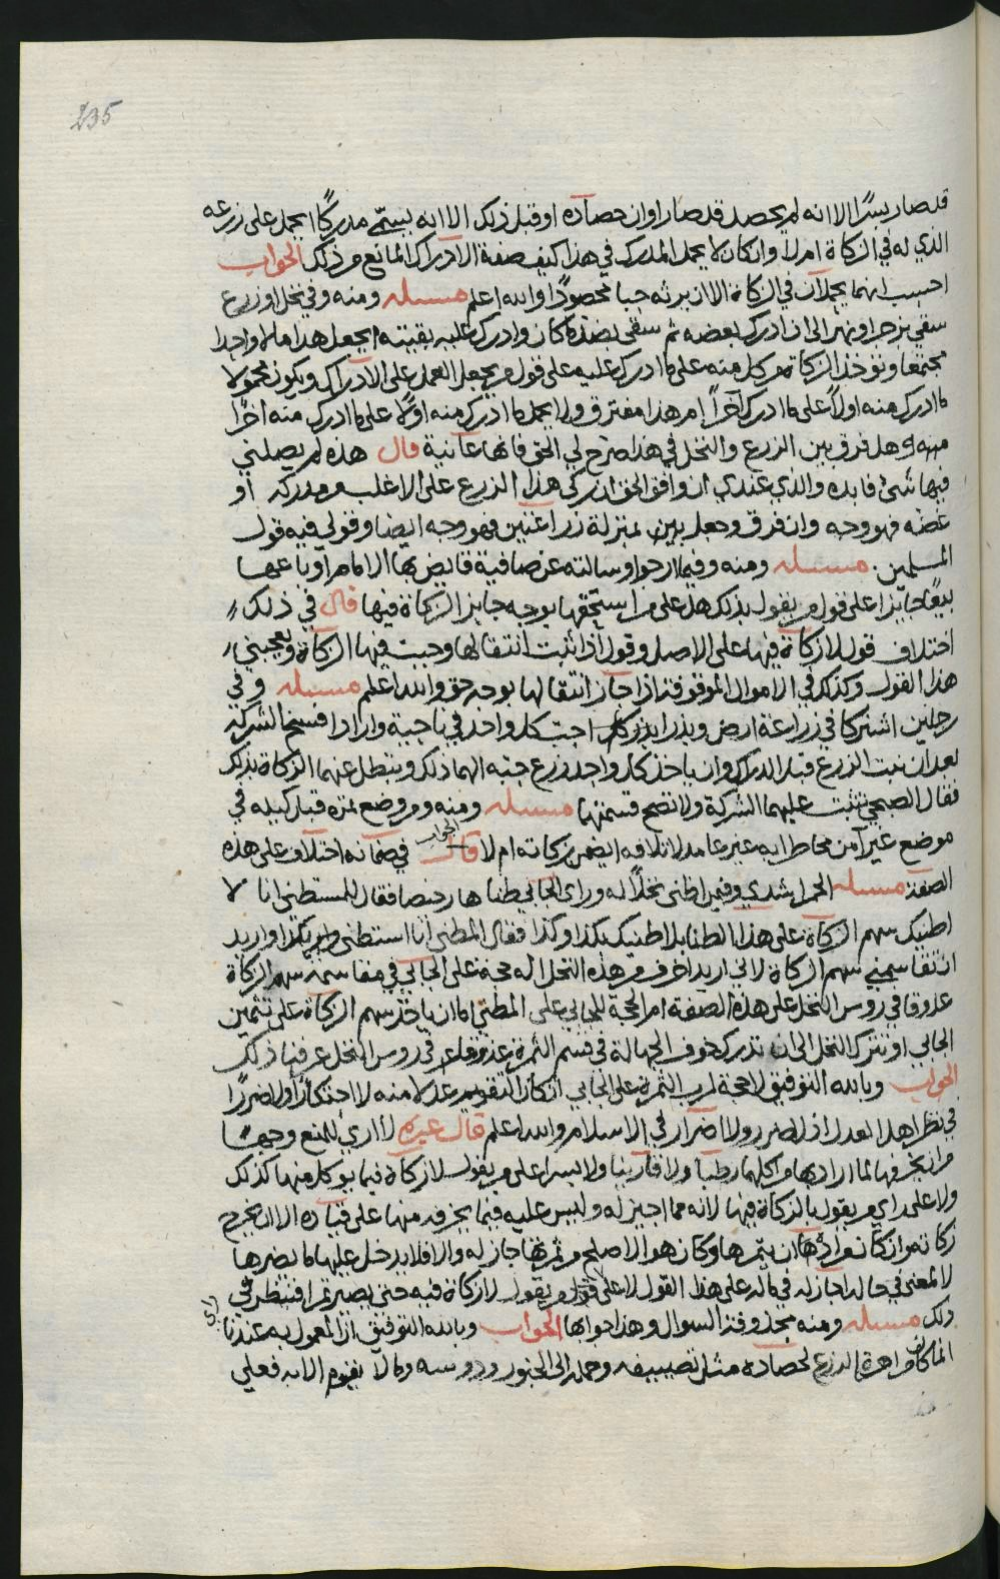 235
قد صار بسرًا الا انه لم يحصد قد صار اوان حصاده او قبل ذلك الا انه يسمّى مدركًا ايحمل على زرعه
الذي له في الزكاة ام لا وان كان لا يحمل المدرك في هذا كيف صفة الادراك المانع من ذلك الجواب
احسب انهما يحملان في الزكاة الا ان يرثه حبا محصودًا والله اعلم مسئله ومنه وفي نخل او زرع
سقي بزجر او نهر الى ان ادرك بعضه ثم سقي بضد ما كان وادرك عليه بقيته ايجعل هذا مالا واحدا
مجتمعا وتؤخذ الزكاة من كل منه على ما ادرك عليه على قول من يجعل العمل على الادراك ويكون محمولا
ما ادرك منه اولاً على ما ادرك آخرًا ام هذا مفترق ولا يحمل ما ادرك منه اولا على ما ادرك منه اخرًا
منه وهل فرق بين الزرع والنخل في هذا صرح لي الحق فانها عانية قال هذه لم يصلني
فيها شئ فابده والذي عندي ان وافق الحق ان زكى هذا الزرع على الاغلب من مدركه او
غضه فهو وجه وان فرق وجعل بمنزلة زراعتين فهو وجه ايضا وقولي فيه قول
المسلمين مسئله ومنه وفيما ارجوا وسالته عن صافية قايض بها الامام او باعها
بيعًا جايزا على قول من يقول بذلك هل على من استحقها بوجه جايز الزكاة فيها قال في ذلك
اختلاف قول لا زكاة فيها على الاصل وقول اذا ثبت انتقالها وجبت فيها الزكاة ويعجبني
هذا القول وكذلك في الاموال الموقوفة اذا جاز انتقالها بوجه حق والله اعلم مسئله وفي
رجلين اشتركا في زراعة ارض وبذرا بذر كل واحد في ناحية وارادا فسخ الشركة
بعد ان نبت الزرع قبل الدراك وان ياخذ كل واحد زرع حبه الهما ذلك وتبطل عنهما الزكاة بذلك
فقال الصبحي تثبت عليهما الشركة ولا تصح قسمتها مسئله ومنه ومن وضع تمره قبل كيله في
موضع غير آمن مخاطرا به غير عامد لاتلافه ايضمن زكاته ام لا الجواب قال في ضمانه اختلاف على هذه
الصفة مسئله الحمراشدي وفيمن اطنى نخلًا له وراى الجابي طناها رخيصا فقال للمستطني انا لا
اطنيك سهم الزكاة على هذا الطنا بل اطنيك بكذا وكذا فقال المطني انا استطني واريد
ان تقاسمني سهم الزكاة لاني اريد اخرف من هذه النخل اله حجة على الجابي في مقاسمة سهم الزكاة
عذوقا في روس النخل على هذه الصفة ام الحجة للجابي على المطني اما ان ياخذ سهم الزكاة على تثمين
الجابي او تترك النخل الى ان تدرك خوف الجهالة في قسم الثمرة عذوقا في روس النخل عرفنا ذلك
الجواب وبالله التوفيق لا حجة لرب الثمرة على الجابي ان كان التقويم عدلا منه لا احتكارًا ولا ضررًا
في نظر اهل العدل اذ لا ضرر ولا اضرار في الاسلام والله اعلم قال غيره لا ارى للمنع وجهًا
من ان يخرفها لما ارادها من اكلها رطبا ولا قارينا ولا بسرا على من يقول لا زكاة فيما يوكل منها كذلك
ولا على راي من يقول بالزكاة فيها لانه مما اجيز له وليس عليه فيما يخرفه منها على قياده الا ان يخرج
زكاته وان كان مراده ان يتمرها وكان هو الاصلح من ثمرتها جاز له والا فلا يدخل عليها ما يضرها
لا لمعنى في حاله اجاز له في ماله على هذا القول لا على قول من يقول لا زكاة فيه حتى يصير تمرا فننظر في
ذلك مسئله ومنه بحذوفة السوال وهذا جوابها الجواب وبالله التوفيق ان المعمول به عندنا
ان ما كان من اجرة الزرع لحصاده مثل تصييفه وحمله الى الجنور ودوسه وما لا يقوم الا به فعلى
راى